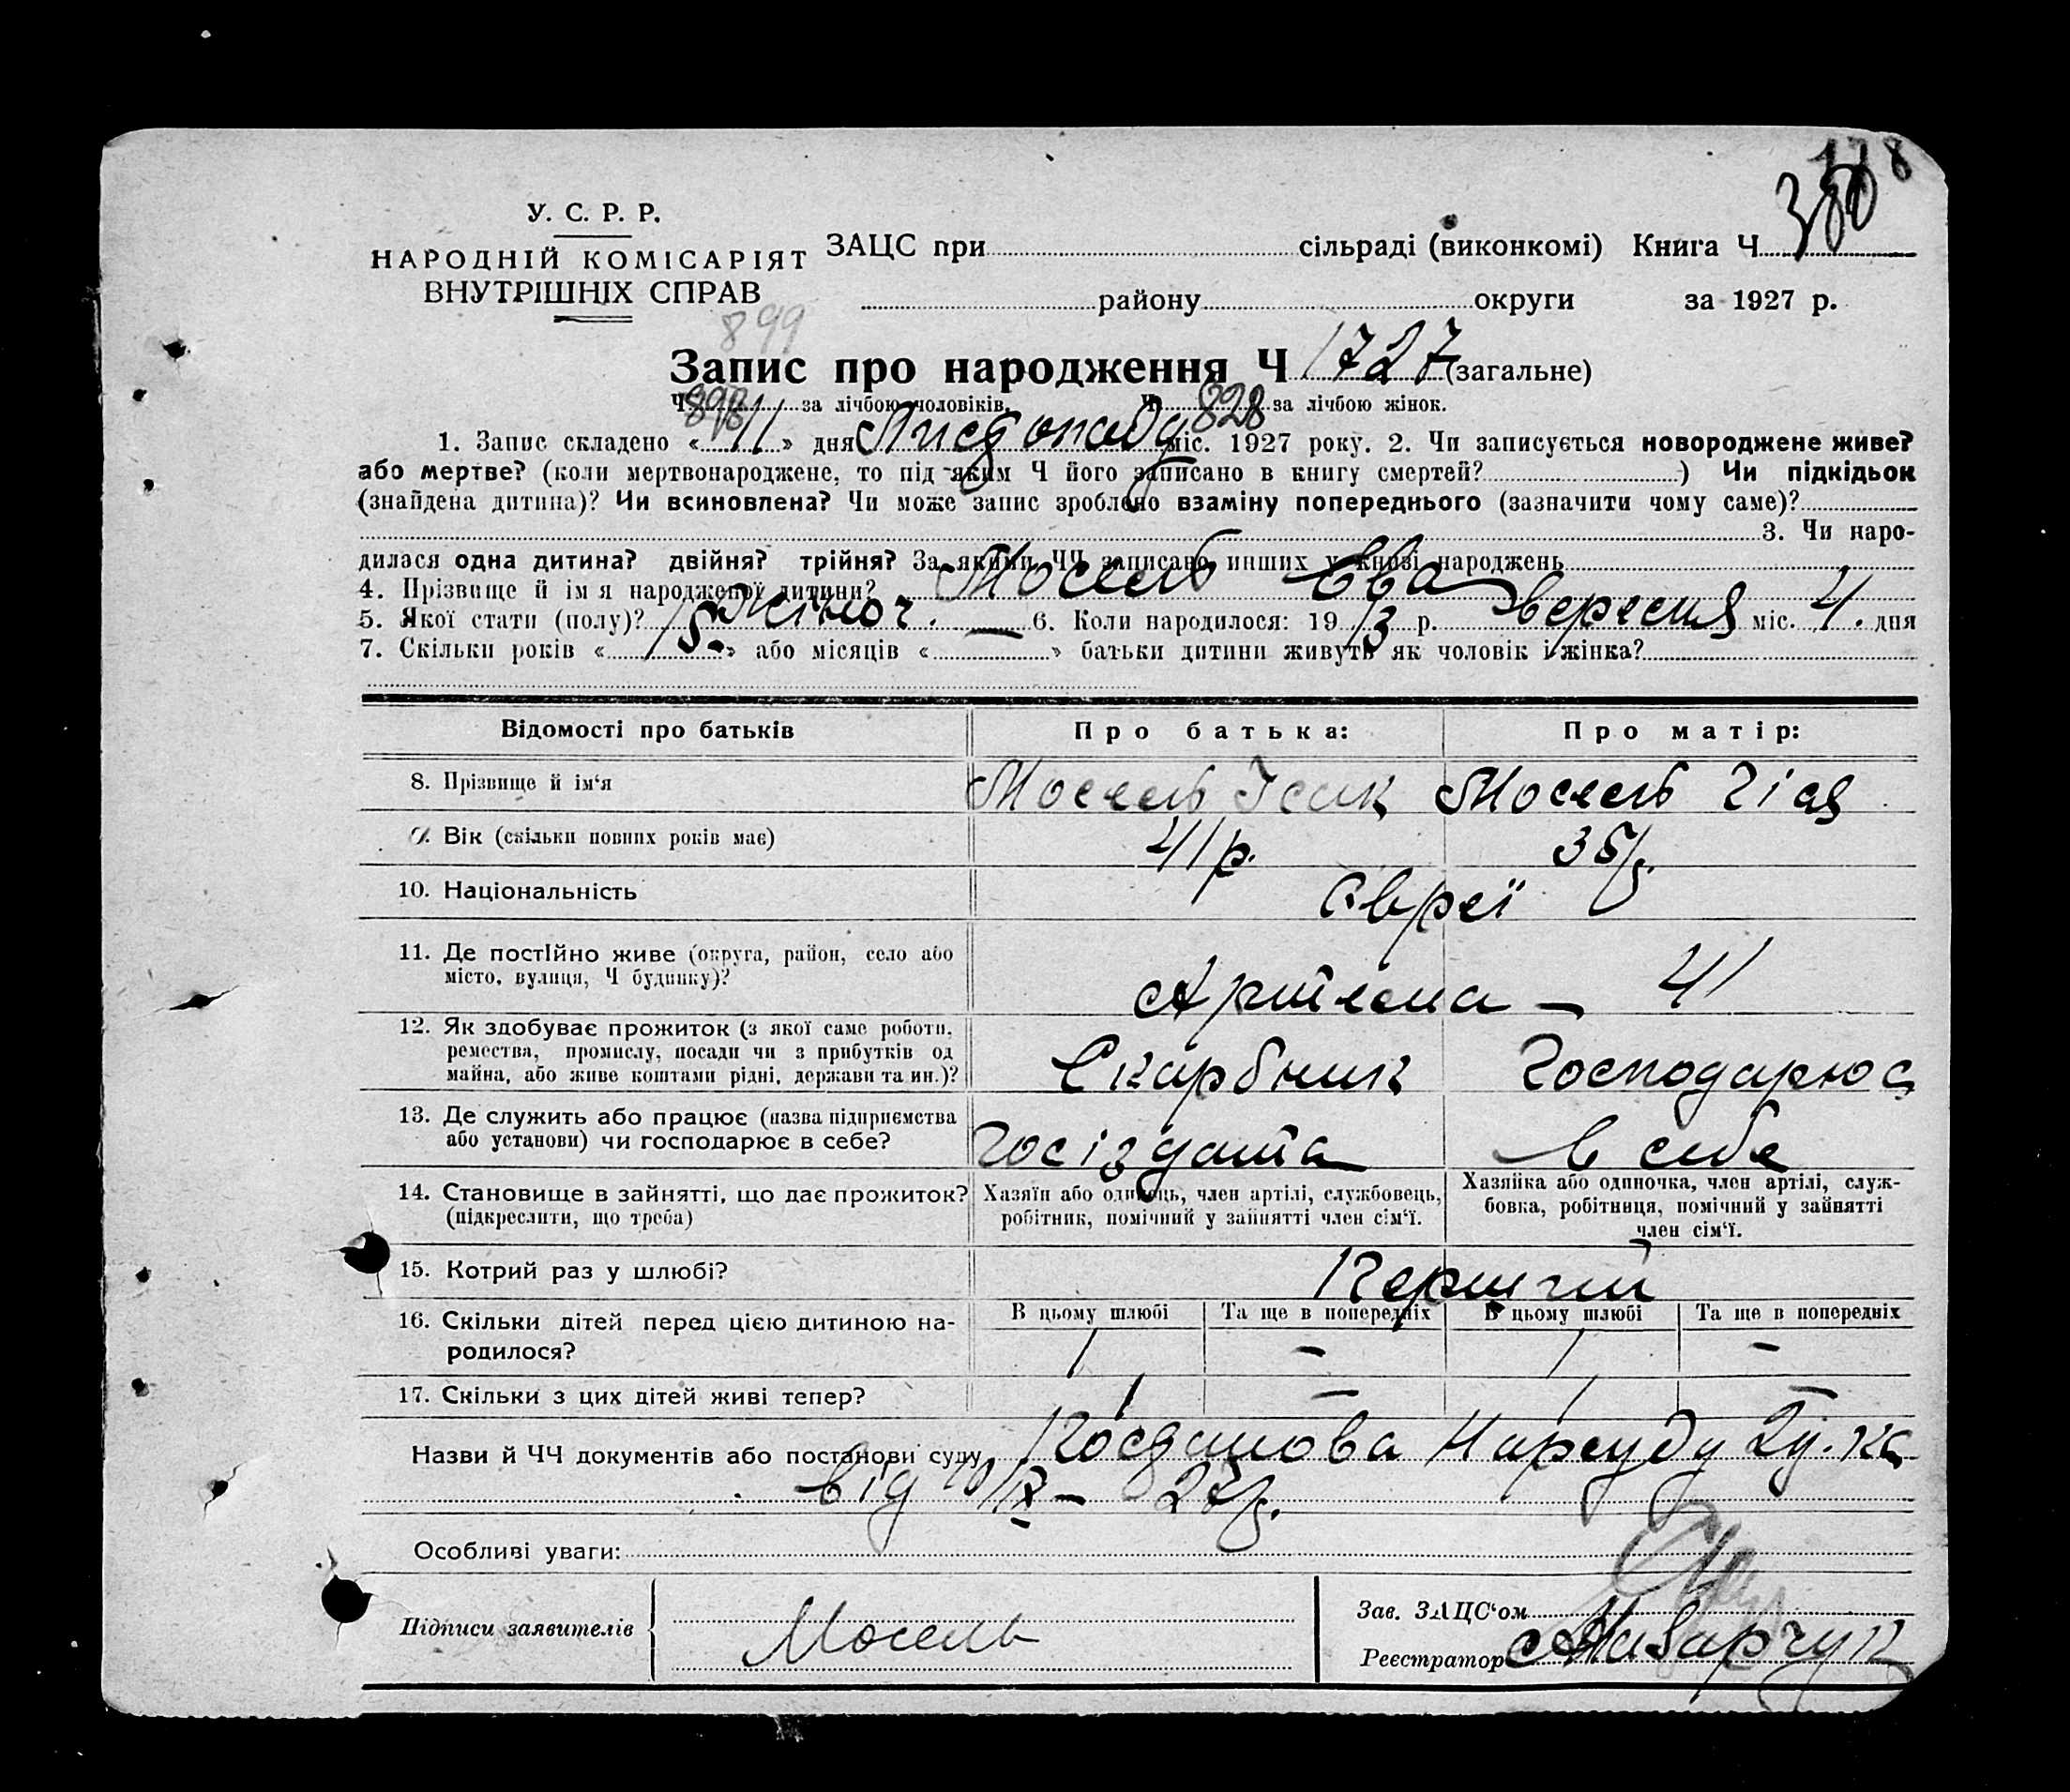 У. С. Р. Р.
НАРОДНІЙ КОМІСАРІЯТ
ВНУТРІШНІХ СПРАВ
ЗАЦС при сільраді (виконкомі) Книга Ч
району округи за 1927 р.
899
Запис про народження Ч 1727 (загальне)
Ч за лічбою чоловіків. Ч 828 за лічбою жінок.
1. Запис складено «11» дня Листопаду міс. 1927 року. 2. Чи записується новороджене живе?
або мертве? (коли мертвонароджене, то під яким Ч його записано в книгу смертей? ) Чи підкідьок
(знайдена дитина)? Чи всиновлена? Чи може запис зроблено взаміну попереднього (зазначити чому саме)?
3. Чи наро-
дилася одна дитина? двійня? трійня? За якими ЧЧ записано инших у книзі народжень
4. Прізвище й ім я народженої дитини? Мосель Ева
5. Якої стати (полу)? жіноч. — 6. Коли народилося: 1913 р. вересня міс. 4. дня
7. Скільки років «15.» або місяців « » батьки дитини живуть як чоловік і жінка?
Відомості про батьків Про батька: Про матір:
8. Прізвище й ім‘я Мосель Ісак Мосель Гіля
9. Вік (скільки повних років має) 41 р. 35 р.
10. Національність Євреї
11. Де постійно живе (округа, район, село або
місто, вулиця, Ч будинку)? Артема — 41
12. Як здобуває прожиток (з якої саме роботи,
ремества, промислу, посади чи з прибутків од
майна, або живе коштами рідні, держави та ин.)? Скарбник Господарює
13. Де служить або працює (назва підприємства
або установи) чи господарює в себе? Госіздата в себе
14. Становище в зайнятті, що дає прожиток?
(підкреслити, що треба)
Хазяїн або одинець, член артілі, службовець,
робітник, помічний у зайнятті член сім‘ї.
Хазяйка або одиночка, член артілі, служ-
бовка, робітниця, помічний у зайнятті
член сім‘ї.
15. Котрий раз у шлюбі? Перший
16. Скільки дітей перед цією дитиною на-
родилося?
В цьому шлюбі Та ще в попередніх В цьому шлюбі Та ще в попередніх
1 — 1 —
17. Скільки з цих дітей живі тепер? 1 — 1 —
Назви й ЧЧ документів або постанови суду Постанова Нарсуду 2 у.
від 10/IX — 27 р.
Особливі уваги:
Підписи заявителів Мосель
Зав. ЗАЦС‘ом
Реєстратор